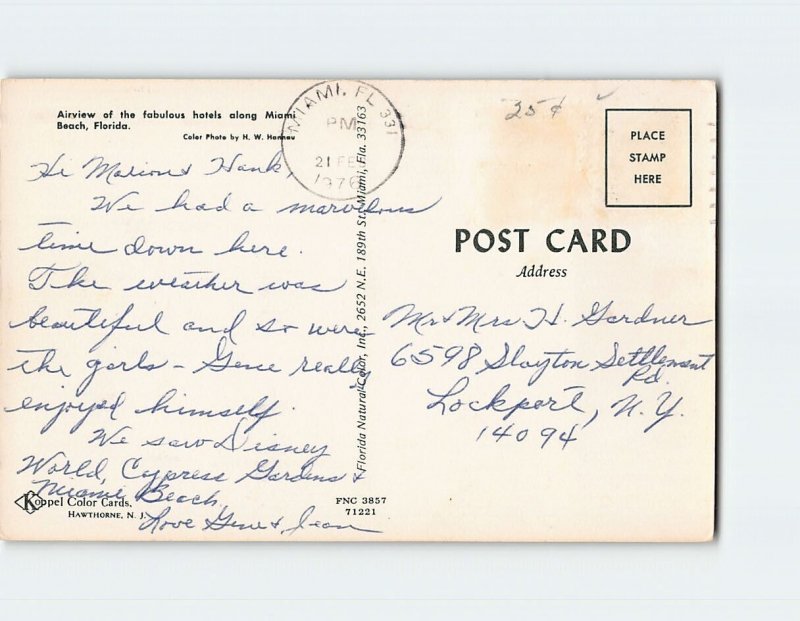 Airview of the fabulous hotels along Miami
Beach, Florida.
Color Photo by H. W. Hannau
Hi Marion & Hank,
We had a marvelous
time down here.
The weather was
beautiful and so were
the girls - Gene really
enjoyed himself.
We saw Disney
World, Cypress Gardens &
Miami Beach.
Love Gene & Jean
Koppel Color Cards,
HAWTHORNE, N. J.
MIAMI, FL 331
PM
21 FEB
1976
Florida Natural Color, Inc., 2652 N.E. 189th St., Miami, Fla. 33163
FNC 3857
71221
25¢
PLACE
STAMP
HERE
POST CARD
Address
Mr & Mrs H. Gardner
6598 Slayton Settlement
Rd.
Lockport, N.Y.
14094